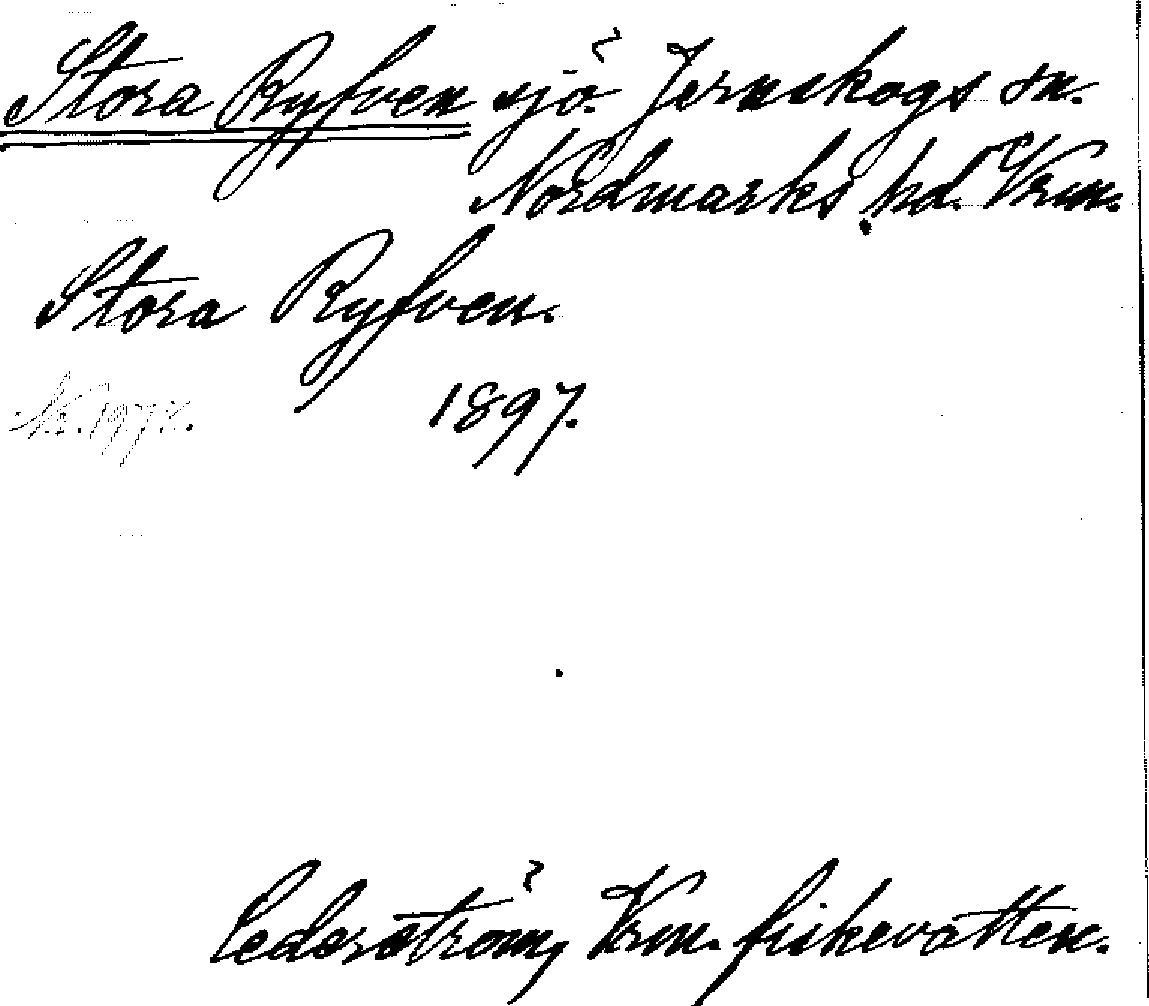 Stora Ryfven sjö. Jernskogs sn.
Nordmarks hd. Vrm.
Stora Ryfven.
1897.
Cederström, Vrm. fiskevatten.